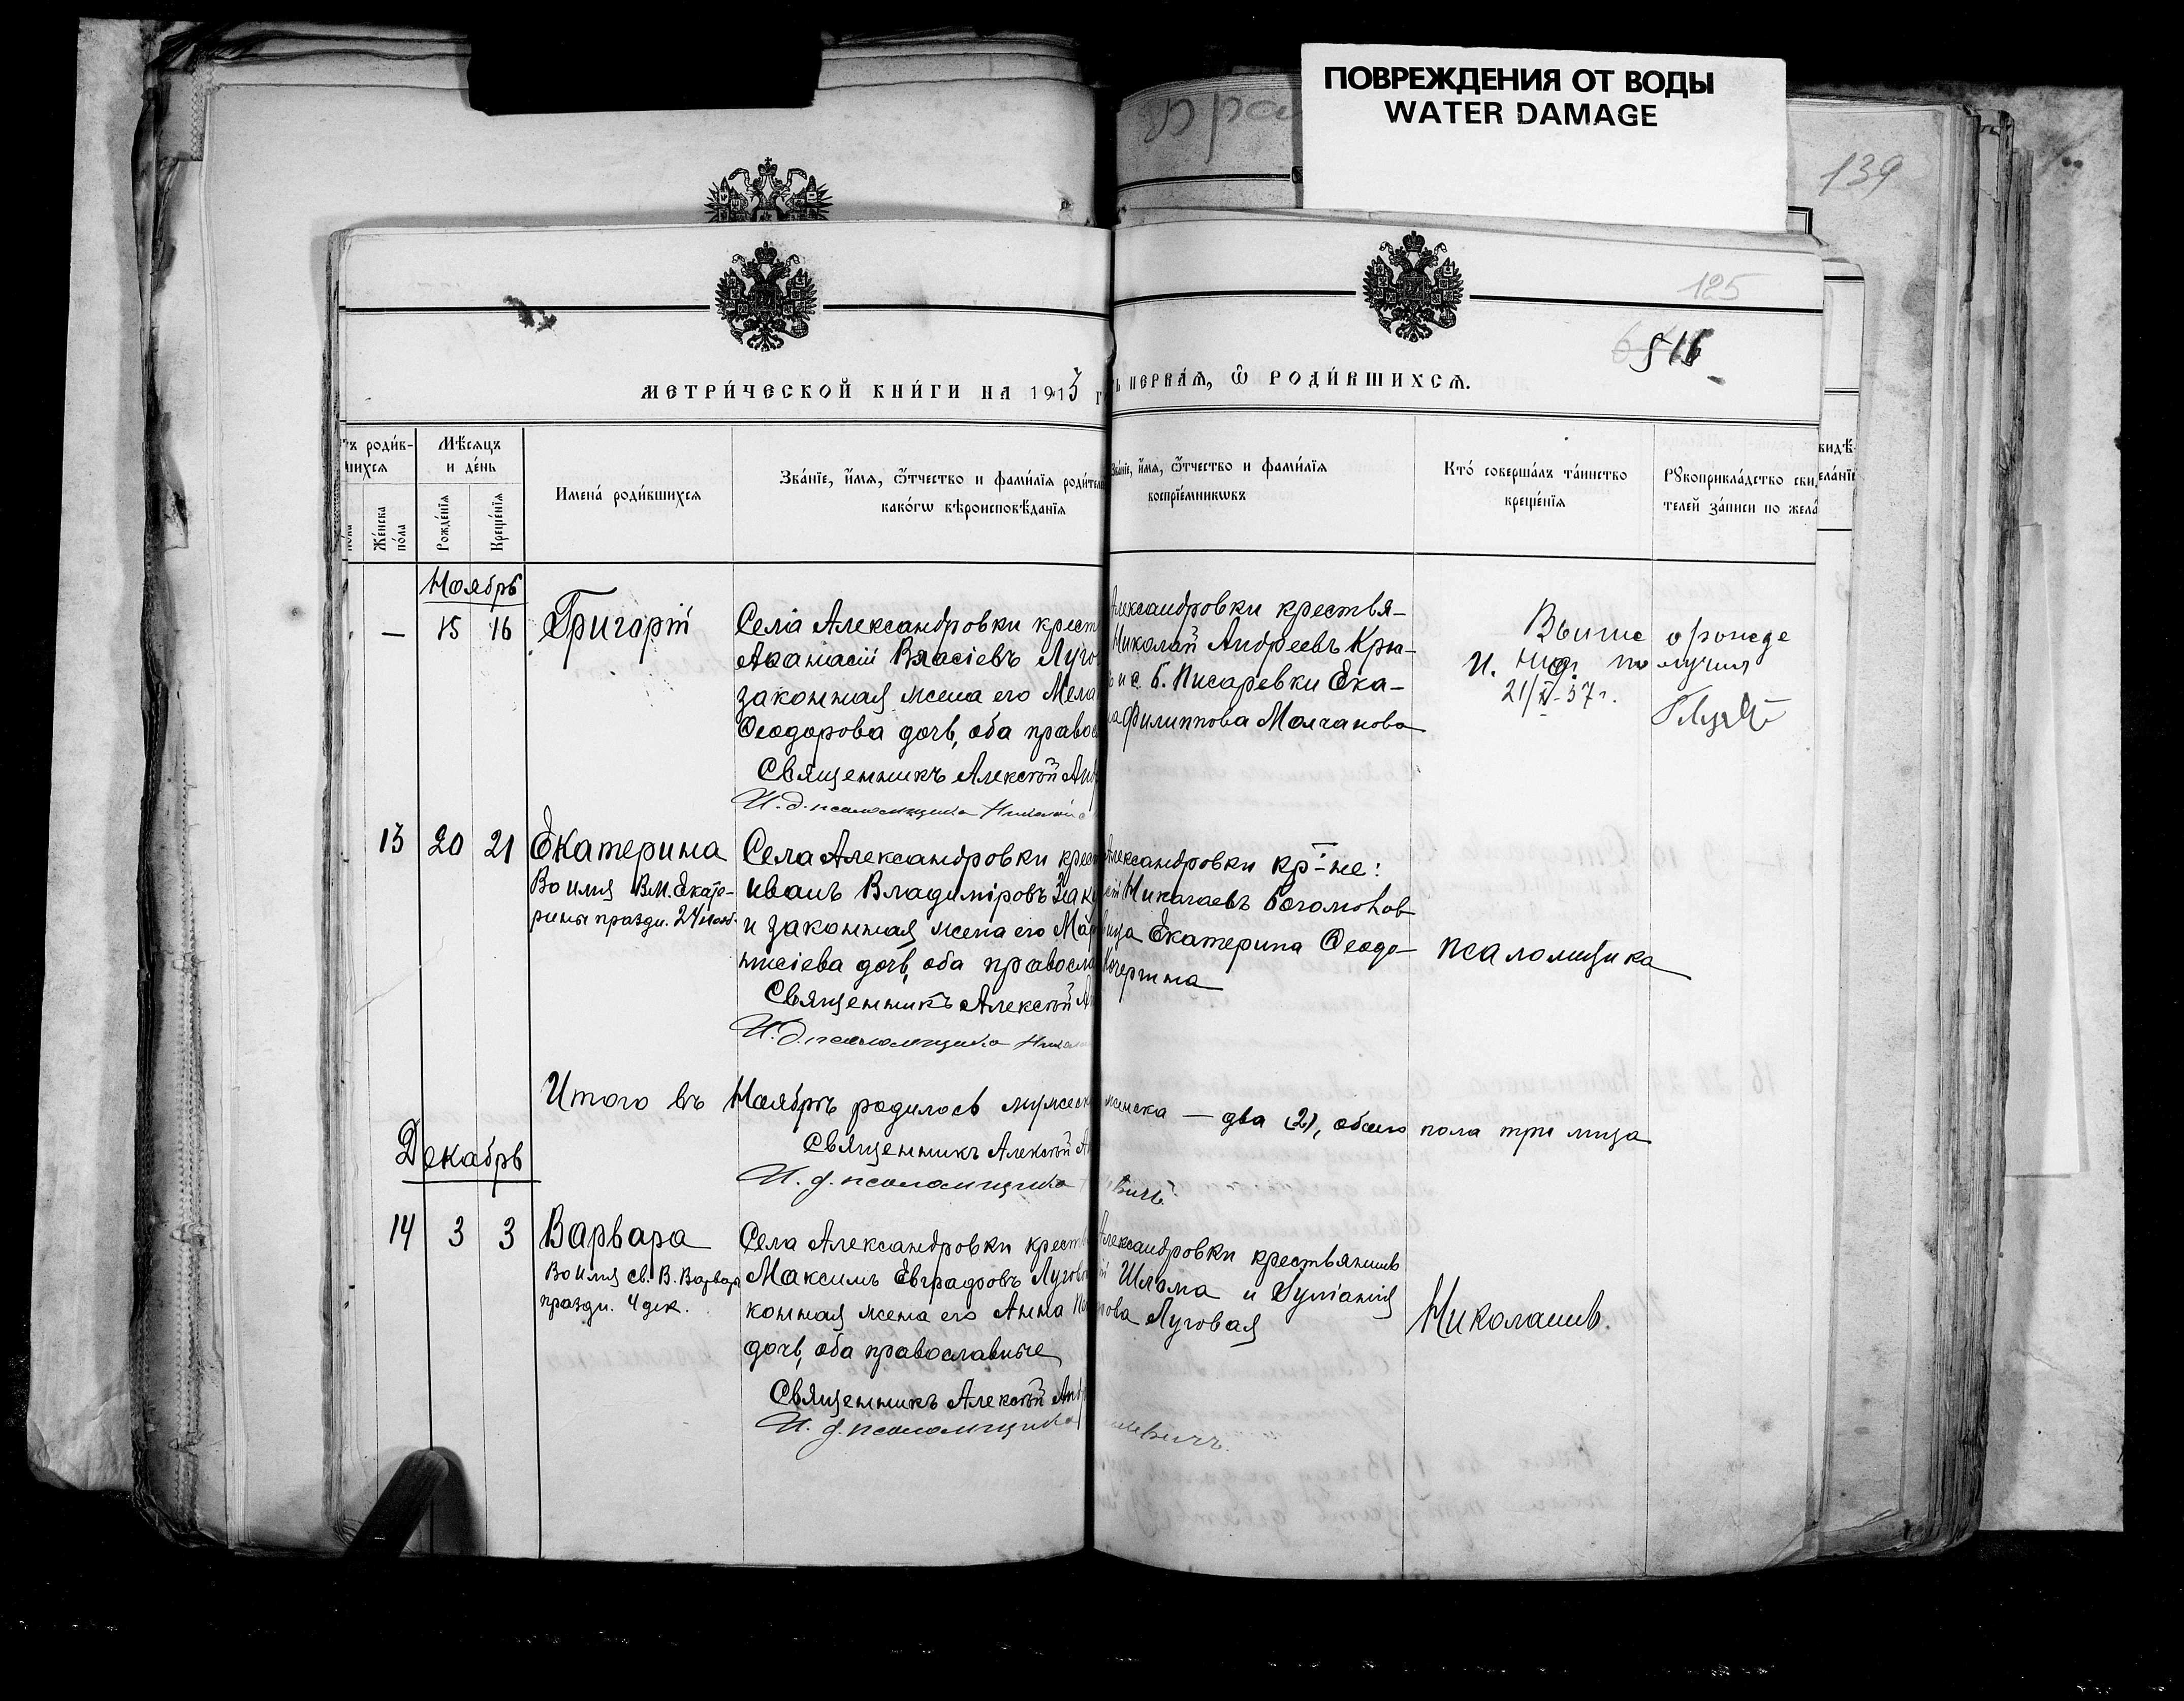 ПОВРЕЖДЕНИЯ ОТ ВОДЫ
WATER DAMAGE
139
125
516
МЕТРИ́ЧЕСКОЙ КНИ́ГИ НА 1913 Г
Ь ПЕРВА́Я, Ѽ РОДИ́ВШИХСЯ.
ъ роди́в-
шихся
Же́нска
по́ла
Мѣ́сяцъ
и де́нь
Рожде́нїя
Креще́нїя
Имена̀ роди́вшихся
Зва́нїе, и҆́мя, ѻ҆́тчество и фами́лїя родителе
како́гѡ вѣроисповѣ́данїя
Зва́нїе, и҆́мя, ѻ҆́тчество и фами́лїя
воспрїе́мникѡвъ
Кто̀ соверша́лъ та́инство
креще́нїя
Рꙋкоприкла́дство сви
телей за́писи по жела́
видѣ-
еланїю
Ноябрь
— 15 16 Григорій
Села Александровки крест
Аѳанасій Власіевъ Луго
законная жена его Мела
Ѳеодорова дочь, оба правос
Священникъ Алексѣй Анд
И. д. псаломщика Николай
Александровки крестья-
Николай Андреевъ Крю-
и с. Б. Писаревки Ека-
на Филиппова Молчанова
Выпис о рожде
получил
21/IV-37г.
13 20 21 Екатерина
Во имя ВМ. Екате-
рины праздн. 24 нояб.
Села Александровки крест
Иванъ Владиміровъ Заку
и законная жена его Мар
нисіева дочь, оба правосла
Священникъ Алексѣй Ан
И. д. псаломщика Никола
Александровки кр-не:
Николаевъ Богомолов
вица Екатерина Ѳеодо-
Кочергина
псаломщика
Итого въ Ноябрѣ родилось мужеск
женска — два (2), обоего пола три лица
Священникъ Алексѣй А
И. д. псаломщика
вичъ
Декабрь
14 3 3 Варвара
Во имя св. В. Варвар
праздн. 4 дек.
Села Александровки крест
Максимъ Евграфовъ Лугов
конная жена его Анна П
дочь, оба православные
Священникъ Алексѣй Анд
И. д. псаломщика
Александровки крестьянинъ
и
рова Луговая
Николаевъ.
евичъ.